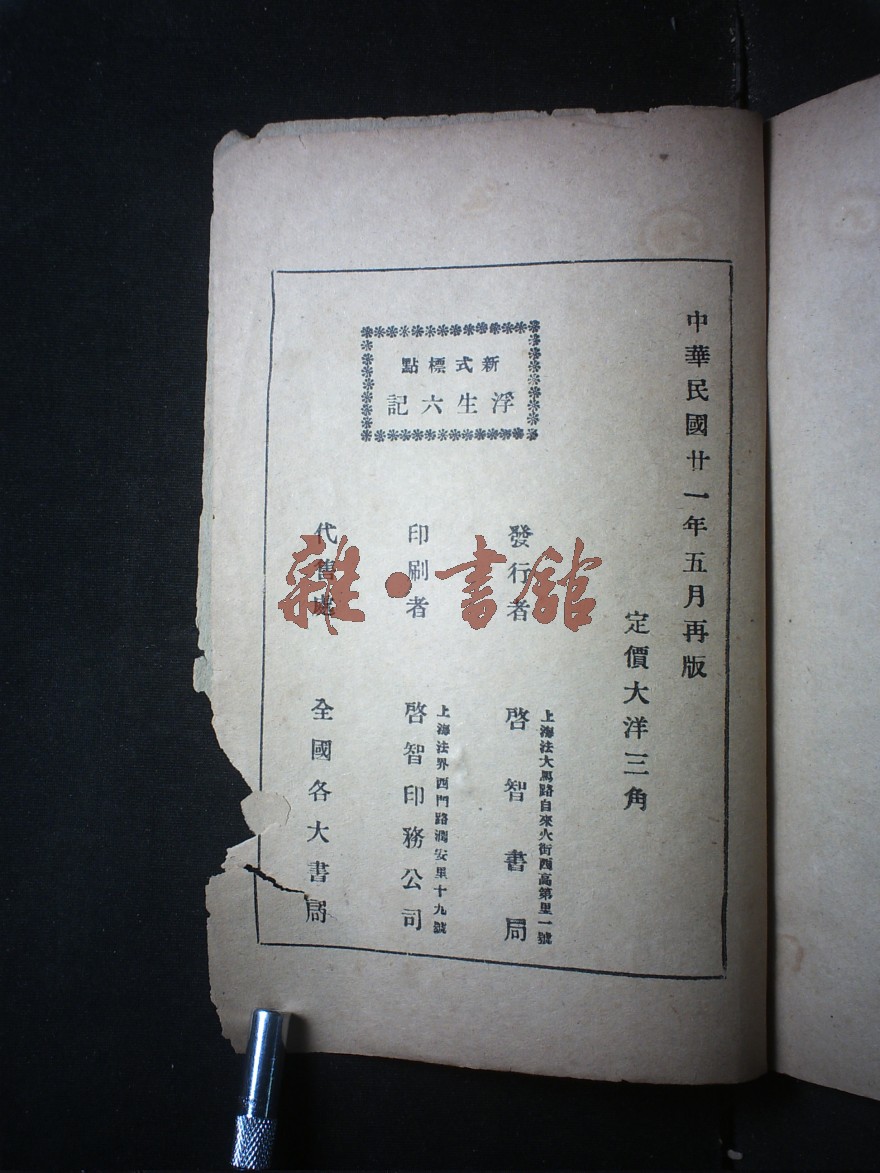 中華民國廿一年五月再版
定價大洋三角
新式標點
浮生六記
發行者
上海法大馬路自來火街西高第里一號
啓智書局
印刷者
上海法界西門路潤安里十九號
啓智印務公司
代售處
全國各大書局
雜·書館